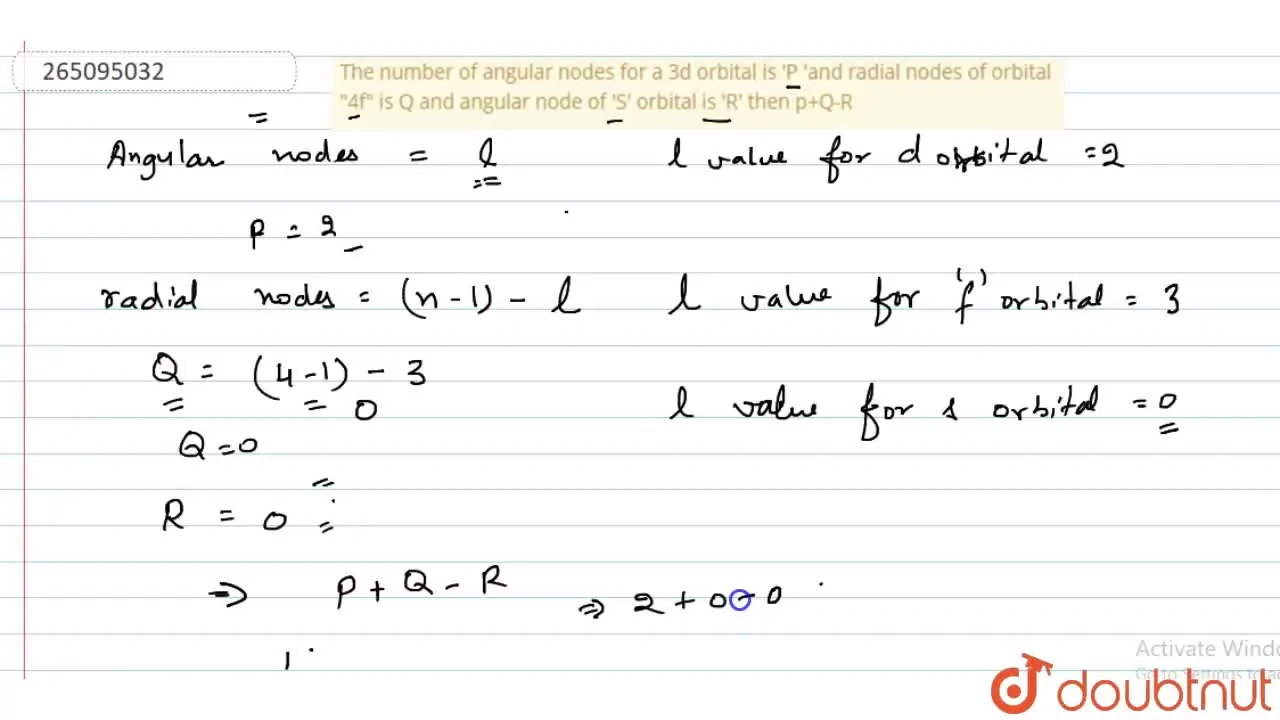 265095032
The number of angular nodes for a 3d orbital is 'P 'and radial nodes of orbital
"4f" is Q and angular node of 'S' orbital is 'R' then p+Q-R
Angular nodes = l
l value for d orbital = 2
P = 2
radial nodes = (n-1) - l
l value for 'f' orbital = 3
Q = (4-1) - 3
= 0
l value for s orbital = 0
Q = 0
R = 0
⇒ P + Q - R
⇒ 2 + 0 - 0
Activate Windo
Go to Settings to ac
doubtnut